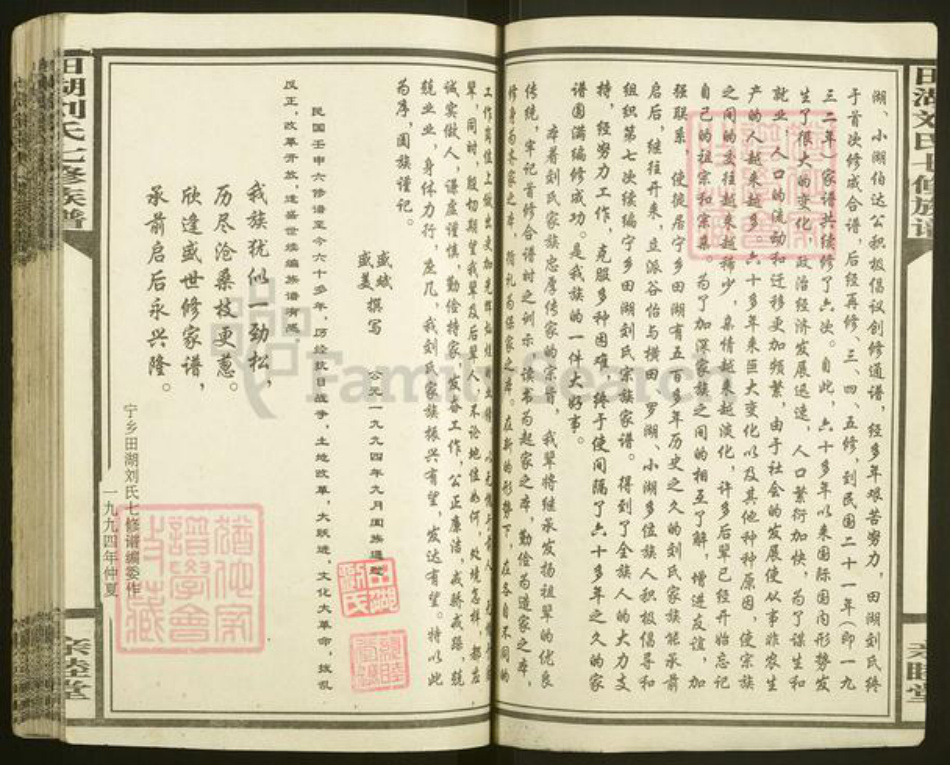 湖、小湖伯达公积极倡议创修通谱，经多年艰苦努力，田湖刘氏终
于首次修成合谱，后经再修、三、四、五修，到民国二十一年（即一九
三二年）家谱共续修了六次。自此，六十多年以来国际国内形势发
生了很大的变化，政治经济发展迅速，人口繁衍加快，为了谋生和
就业，人口的流动和迁移更加频繁，由于社会的发展使从事非农生
产的人越来越多。六十多年来巨大变化以及其他种种原因，使宗族
之间的交往越来越稀少，亲情越来越淡化，许多后辈已经开始忘记
自己的祖宗和宗亲。为了加深家族之间的相互了解，增进友谊，加
强联系，使掟居宁乡田湖有五百多年历史之久的刘氏家族能承前
启后，继往开来，立派谷怡与横田、罗湖、小湖多位族人积极倡导和
组织第七次续编宁乡田湖刘氏宗族家谱。得到了全族人的大力支
持，经努力工作，克服多种困难，终于使间隔了六十多年之久的家
谱圆满编修成功。是我族的一件大好事。
本着刘氏家族忠厚传家的宗旨，我辈将继承发扬祖辈的优良
传统，牢记首修合谱时之训示：读书为起家之本，勤俭为造家之本，
修身为齐家之本，循礼为保家之本。在新的形势下，在各自不同的
工作岗位上做出更加光辉灿烂
辈，同时，殷切期望我辈及后辈人，不论地位如何，处境怎样，都应
诚实做人，谦虚谨慎，勤俭持家，发奋工作，公正廉洁，戒骄戒躁，兢
兢业业，身体力行，庶几，我刘氏家族振兴有望，发达有望。特以此
为序，阖族谨记。
盛斌
盛美 撰写 公元一九九四年九月阖族通
民国壬申六修谱至今六十多年，历经抗日战争，土地改革，大跃进，文化大革命，拨乱
反正，改革开放，逢盛世续编族谱有感
我族犹似一劲松，
历尽沧桑枝更蔥。
欣逢盛世修家谱，
承前启后永兴隆。
宁乡田湖刘氏七修谱编委作
一九九四年仲夏
田湖刘氏七修族谱
亲睦堂
田湖刘氏七修族谱
亲睦堂
田湖
刘氏
猶他家
譜學會
封藏
FamilySearch